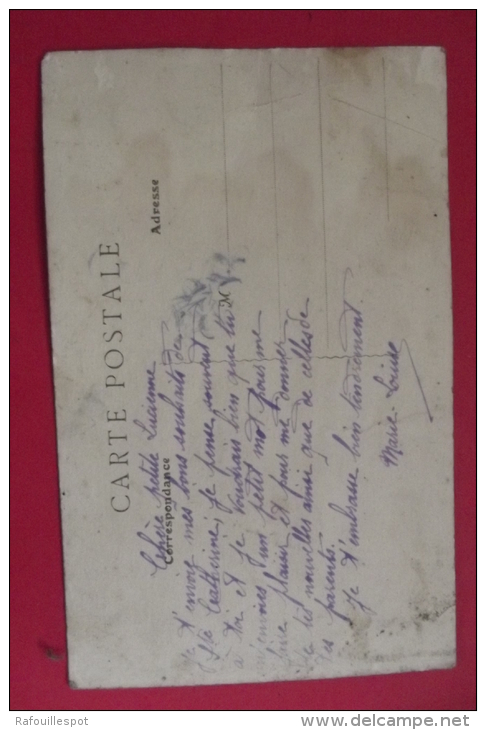 CARTE POSTALE
Correspondance
Adresse
M
Chère petite Lucienne
Je t'envoie mes bons souhaits de
Ste Catherine, je pense souvent
à toi et je voudrais bien que tu
m'envoies un petit mot pour me
faire plaisir et pour me donner
de tes nouvelles ainsi que de celles de
tes parents.
Je t'embrasse bien tendrement
Marie-Louise
Rafouillespot
www.delcampe.net